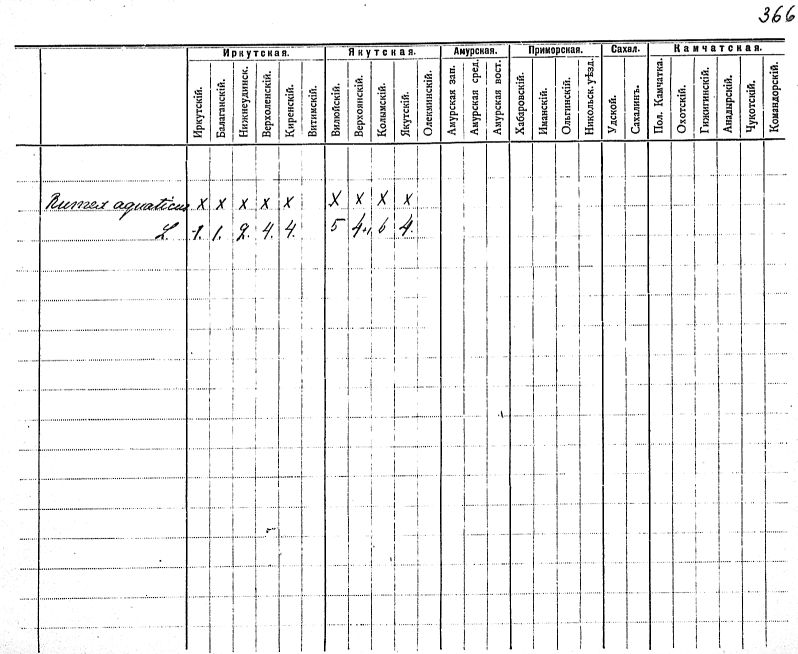 366
Иркутская. Якутская. Амурская. Приморская. Сахал. Камчатская.
Иркутскій. Балаганскій. Нижнеудинск. Верхоленскій. Киренскій. Витимскій. Вилюйскій. Верхоянскій. Колымскій. Якутскій. Олекминскій. Амурская зап. Амурская сред. Амурская вост. Хабаровскій. Иманскій. Ольгинскій. Никольск. уѣзд. Удской. Сахалинъ. Пол. Камчатка. Охотскій. Гижигинскій. Анадырскій. Чукотскій. Командорскій.
Rumex aquaticus x x x x x x x x x
L. 1. 1. 2. 4. 4. 5 4 6 4.